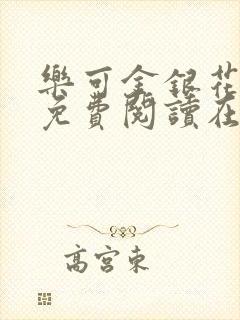 樂可金銀花
免費閱讀在
高宮東